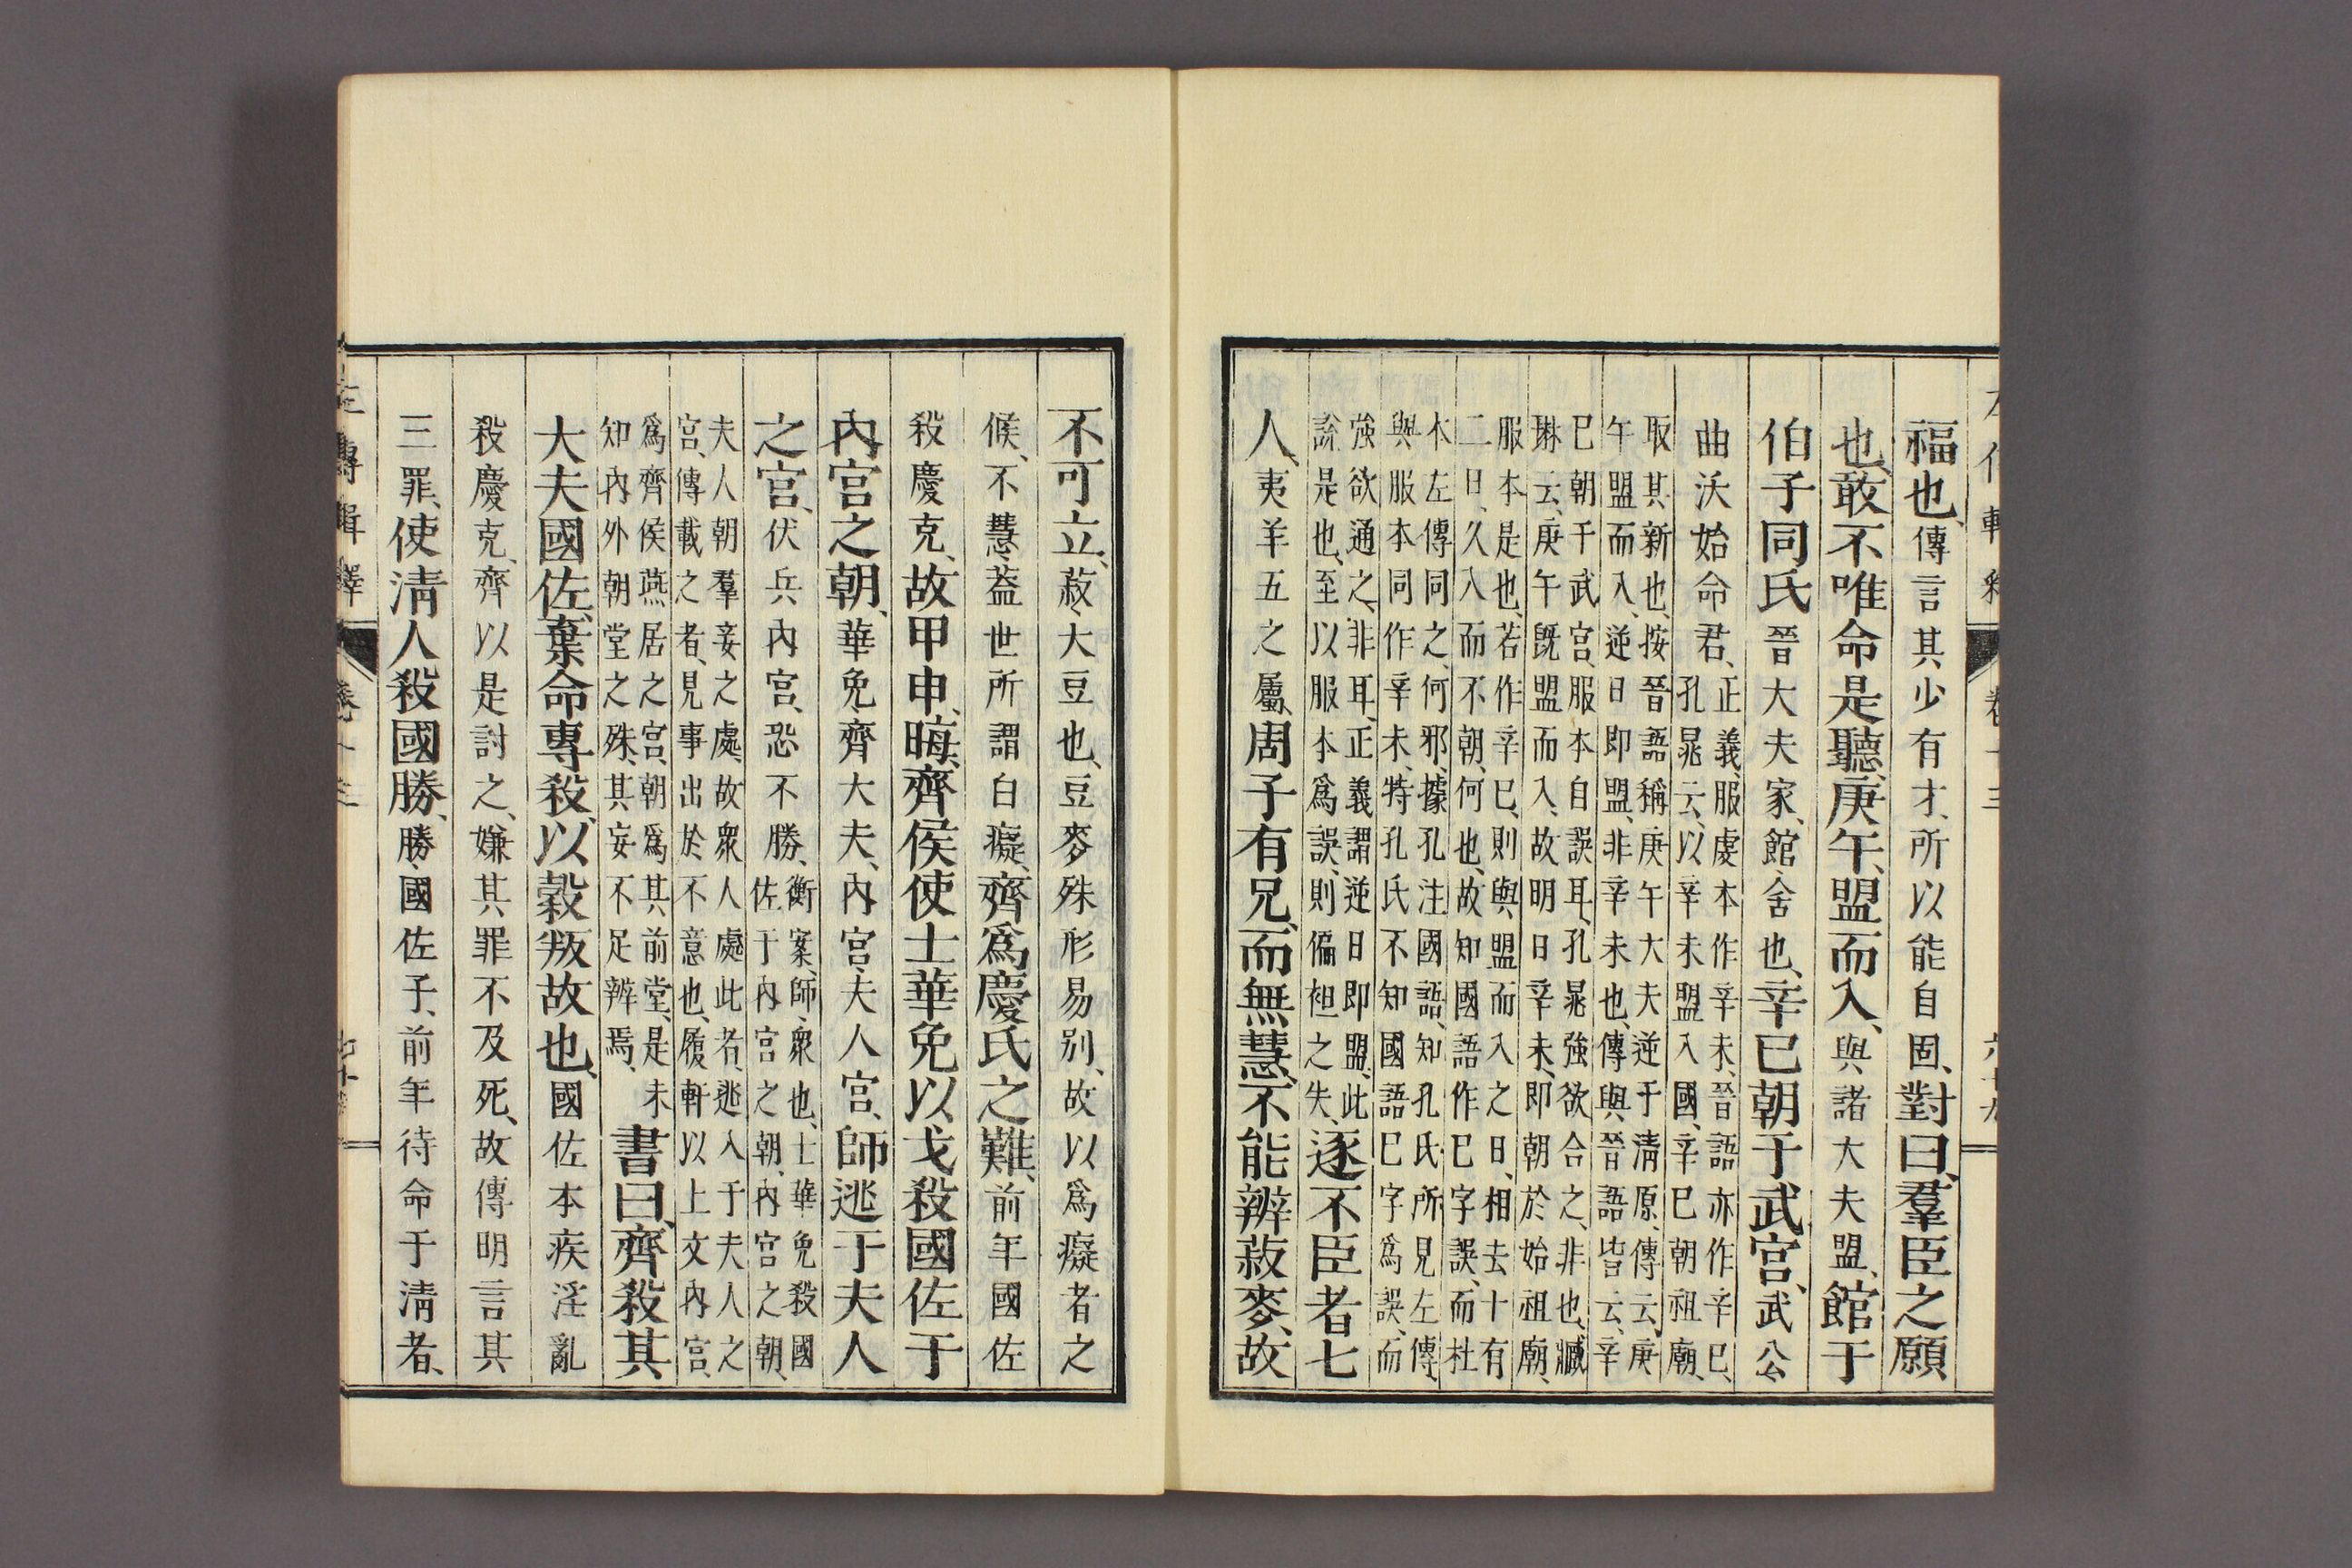 福也、傳言其少有才、所以能自固、對曰、羣臣之願
也、敢不唯命是聽、庚午、盟而入、與諸大夫盟、館于
伯子同氏晉大夫家、館、舍也、辛巳朝于武宮、武公
曲沃始命君、正義、服虔本作辛未、晉語亦作辛巳、
孔晁云、以辛未盟入國、辛巳朝祖廟、
取其新也、按晉語稱庚午大夫逆于淸原、傳云、庚
午盟而入、逆日即盟、非辛未也、傳與晉語皆云、辛
巳朝于武宮、服本自誤耳、孔晁強欲合之、非也、臧
琳云、庚午旣盟而入、故明日辛未、即朝於始祖廟、
服本是也、若作辛巳、則與盟而入之日、相去十有
二日、久入而不朝、何也、故知國語作巳字誤、而杜
本左傳同之、何邪、據孔注國語、知孔氏所見左傳、
與服本同作辛未、特孔氏不知國語巳字爲誤、而
強欲通之、非耳、正義謂逆日即盟、此
說是也、至以服本爲誤、則偏袒之失、逐不臣者七
人、夷羊五之屬、周子有兄、而無慧、不能辨菽麥、故
不可立、菽、大豆也、豆麥殊形易别、故以爲癡者之
候、不慧、葢世所謂白癡、齊爲慶氏之難、前年國佐
殺慶克、故甲申、晦、齊侯使士華免以戈殺國佐于
內宮之朝、華免、齊大夫、內宮、夫人宮、師逃于夫人
之宮、伏兵內宮、恐不勝、衡案、師、衆也、士華免殺國
佐于內宮之朝、內宮之朝、
夫人朝羣妾之處、故衆人處此者、逃入于夫人之
宮、傳載之者、見事出於不意也、履軒以上文內宮、
爲齊侯燕居之宮、朝爲其前堂、是未
知內外朝堂之殊、其妄不足辨焉、書曰、齊殺其
大夫國佐、棄命專殺、以穀叛故也、國佐本疾淫亂
殺慶克、齊以是討之、嫌其罪不及死、故傳明言其
三罪、使淸人殺國勝、勝、國佐子、前年待命于淸者、
左傳輯釋